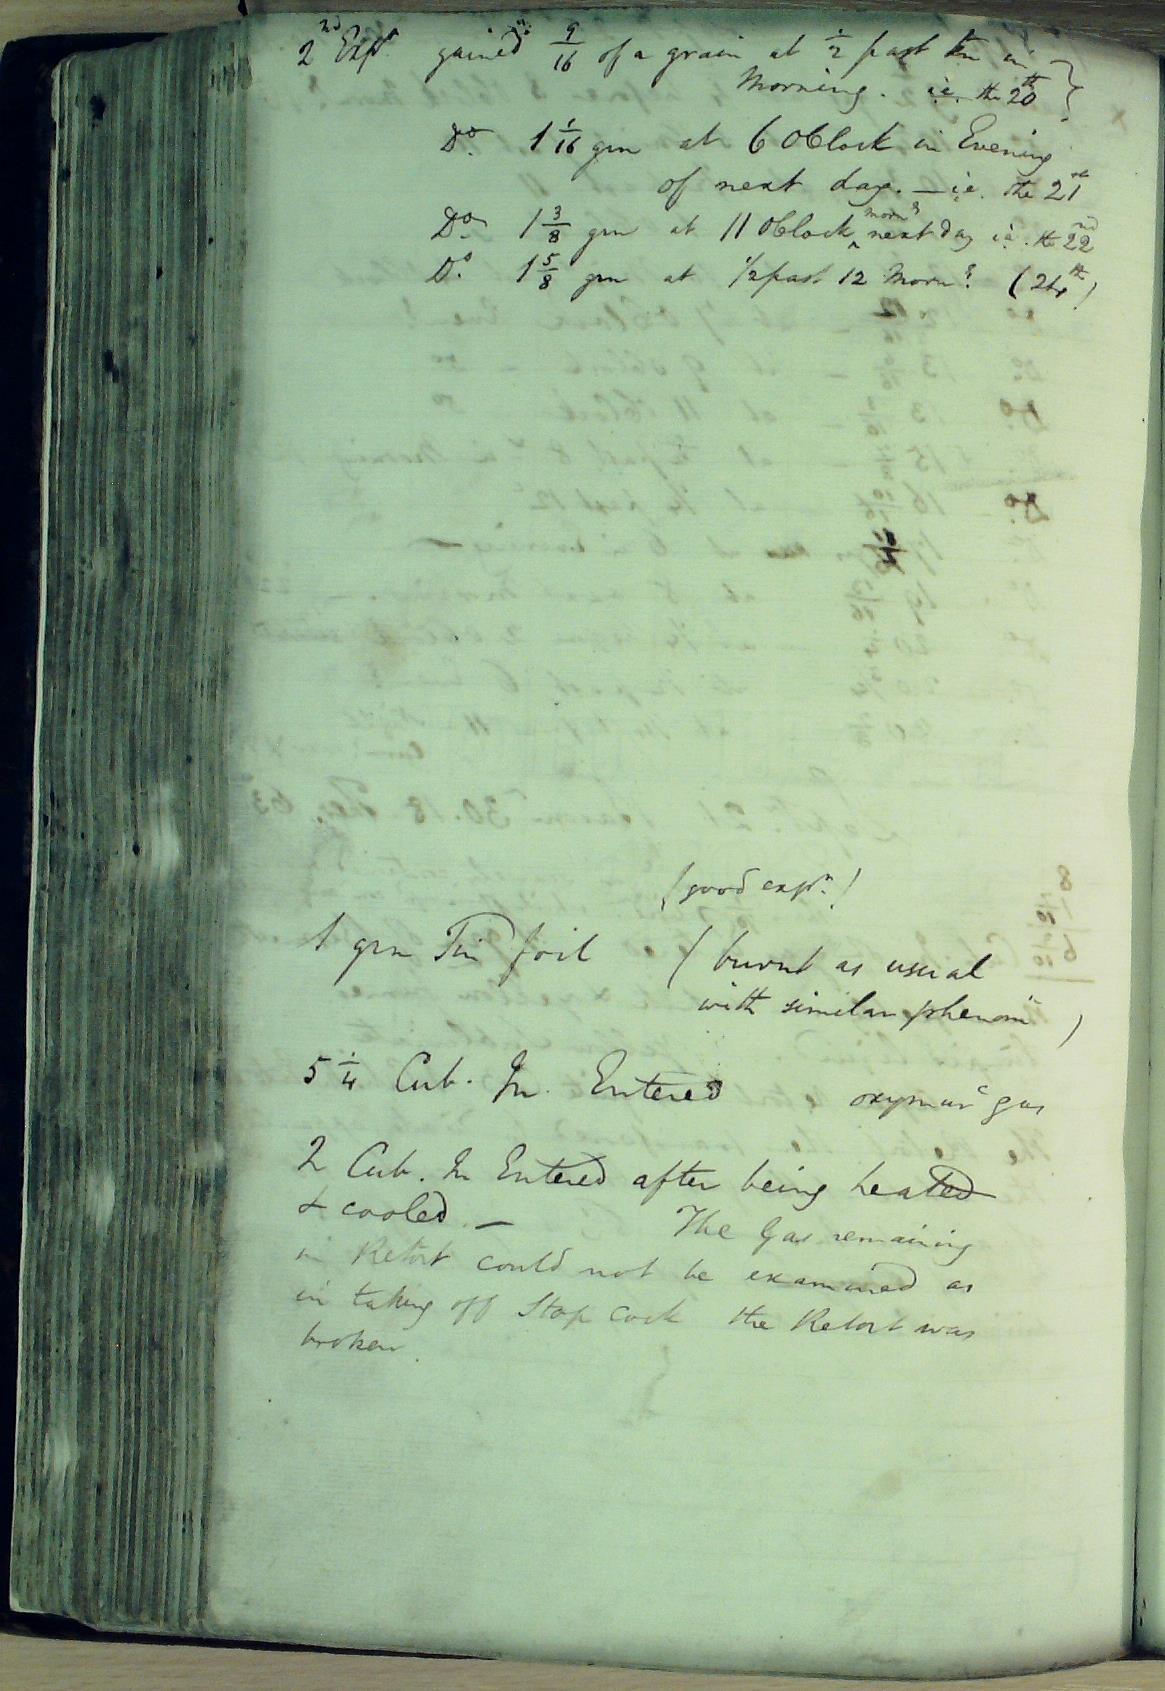 2nd Expt gained 9/16 of a grain at 1/2 past ten in
Morning. ie. the 20th
Do. 1 1/16 grn at 6 OClock in Evening
of next day. — ie. the 21st
Do. 1 3/8 grn at 11 OClock morng next day ie. the 22nd
Do. 1 5/8 grn at 1/2 past 12 Morng (24th)
(good expt.)
1 grn Tin foil (burnt as usual
with similar phenom)
5 1/4 Cub. In. Entered oxymurc gas
2 Cub. In Entered after being heated
& cooled — The Gas remaining
in Retort could not be examined as
in taking off Stop cock the Retort was
broken.